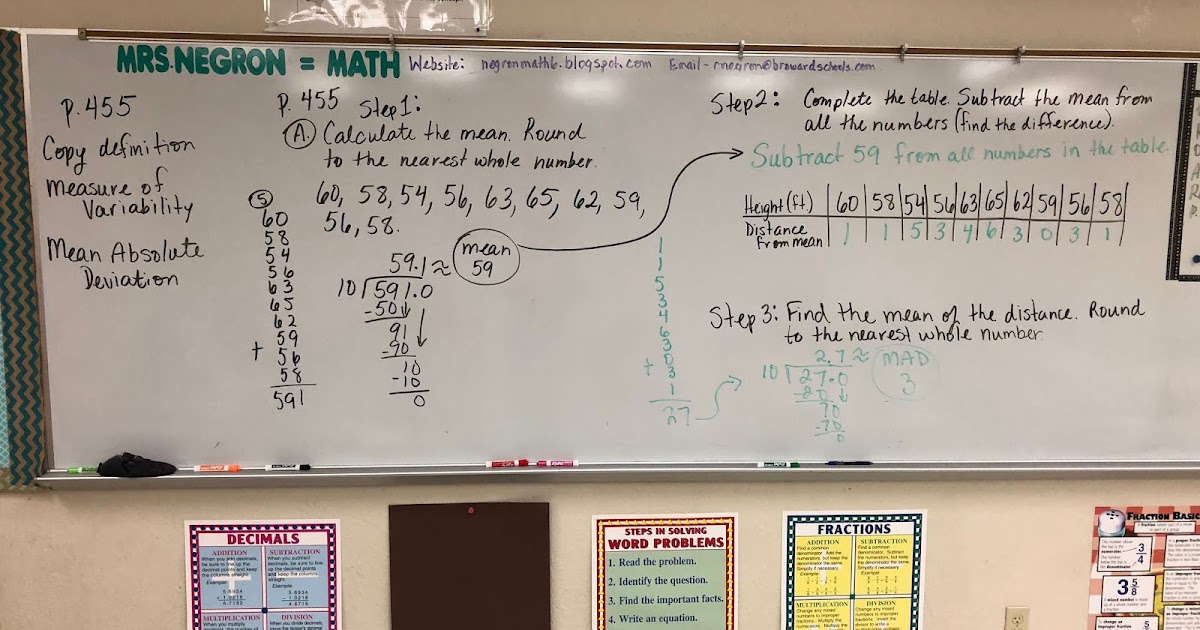 MRS. NEGRON = MATH Website: negronmath6.blogspot.com Email - rnegron@browardschools.com
P. 455
Copy definition
Measure of
Variability
Mean Absolute
Deviation
P. 455 Step 1:
(A) Calculate the mean. Round
to the nearest whole number.
60, 58, 54, 56, 63, 65, 62, 59,
56, 58.
5
60
58
54
56
63
65
62
59
+ 56
58
591
59.1 ≈
10 591.0
-50
91
-90
10
-10
0
mean
59
Step 2: Complete the table. Subtract the mean from
all the numbers (find the difference).
Subtract 59 from all numbers in the table.
Height (ft) 60 58 54 56 63 65 62 59 56 58
Distance from mean 1 1 5 3 4 6 3 0 3 1
1
1
5
3
4
6
3
0
+ 3
1
27
Step 3: Find the mean of the distance. Round
to the nearest whole number.
2.7 ≈
10 27.0
-20
70
-70
0
MAD
3
DECIMALS
ADDITION
When you add decimals,
be sure to line up the
decimal points and keep
the columns straight.
Example:
SUBTRACTION
When you subtract
decimals, be sure to line
up the decimal points
and keep the columns
straight.
Example:
MULTIPLICATION
When you multiply
DIVISION
STEPS IN SOLVING
WORD PROBLEMS
1. Read the problem.
2. Identify the question.
3. Find the important facts.
4. Write an equation.
FRACTIONS
ADDITION
Find a common
denominator. Add the
numerators, but keep the
denominator the same.
Simplify if necessary.
Example:
SUBTRACTION
Find a common
denominator. Subtract
the numerators, but keep
the denominator the same.
Simplify if necessary.
Example:
MULTIPLICATION
DIVISION
FRACTION BASIC
3/4
3 5/8